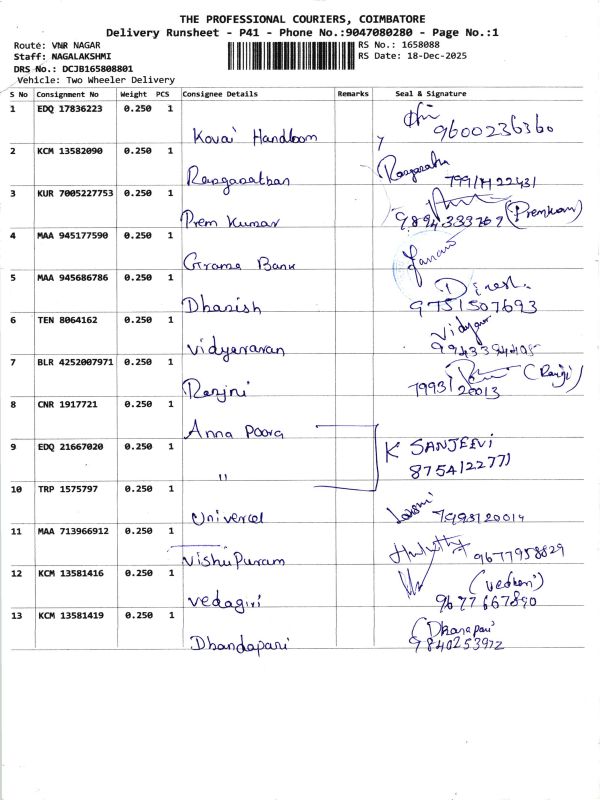 THE PROFESSIONAL COURIERS, COIMBATORE
Delivery Runsheet - P41 - Phone No.:9047080280 - Page No.:1
Route: VNR NAGAR
Staff: NAGALAKSHMI
DRS No.: DCJB165808801
Vehicle: Two Wheeler Delivery
RS No.: 1658088
RS Date: 18-Dec-2025
S No Consignment No Weight PCS Consignee Details Remarks Seal & Signature
1 EDQ 17836223 0.250 1 Kovai Handloom 9600236360
2 KCM 13582090 0.250 1 Ranganathan
3 KUR 7005227753 0.250 1 Prem Kumar
4 MAA 945177590 0.250 1 Grama Bank
5 MAA 945686786 0.250 1 Dhanish 9751507693
6 TEN 8064162 0.250 1 Vidyavaran
7 BLR 4252007971 0.250 1 Ranjni
8 CNR 1917721 0.250 1 Anna Poorg
9 EDQ 21667020 0.250 1 " K SANJEEVI
8754122771
10 TRP 1575797 0.250 1 Univercel
11 MAA 713966912 0.250 1 VishuPuram 9677958829
12 KCM 13581416 0.250 1 Vedagiri
9677667890
13 KCM 13581419 0.250 1 Dhandapani
9840253972